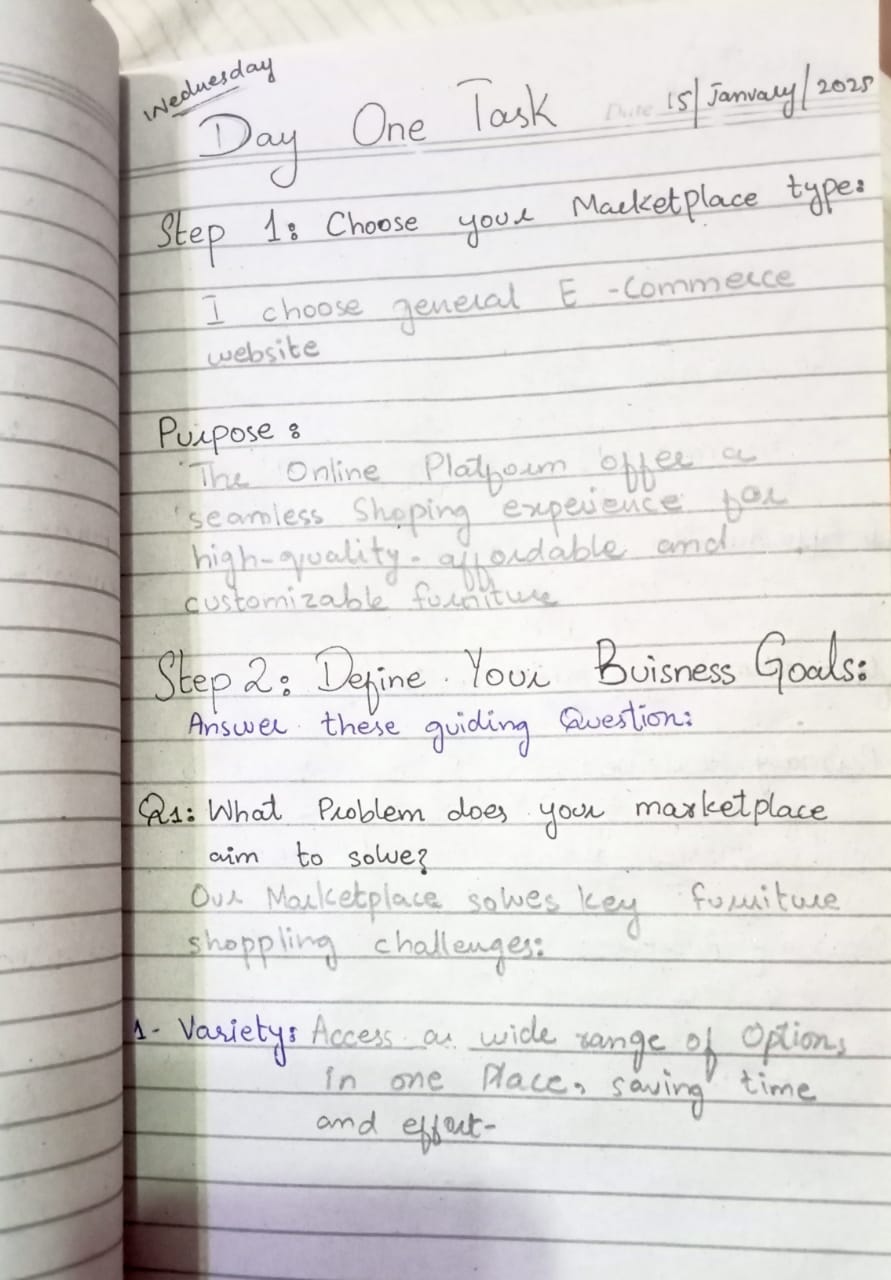 Wednesday
Day One Task Date 15/January/2025
Step 1: Choose your Marketplace type:
I choose general E-Commerce
website
Purpose:
The Online Platform offer a
seamless Shoping experience for
high-quality- affordable and
customizable furniture
Step 2: Define Your Buisness Goals:
Answer these guiding Question:
Q1: What Problem does your marketplace
aim to solve?
Our Marketplace solves key furniture
shoppling challenges:
1- Variety: Access a wide range of Options
in one Place, saving time
and effort-